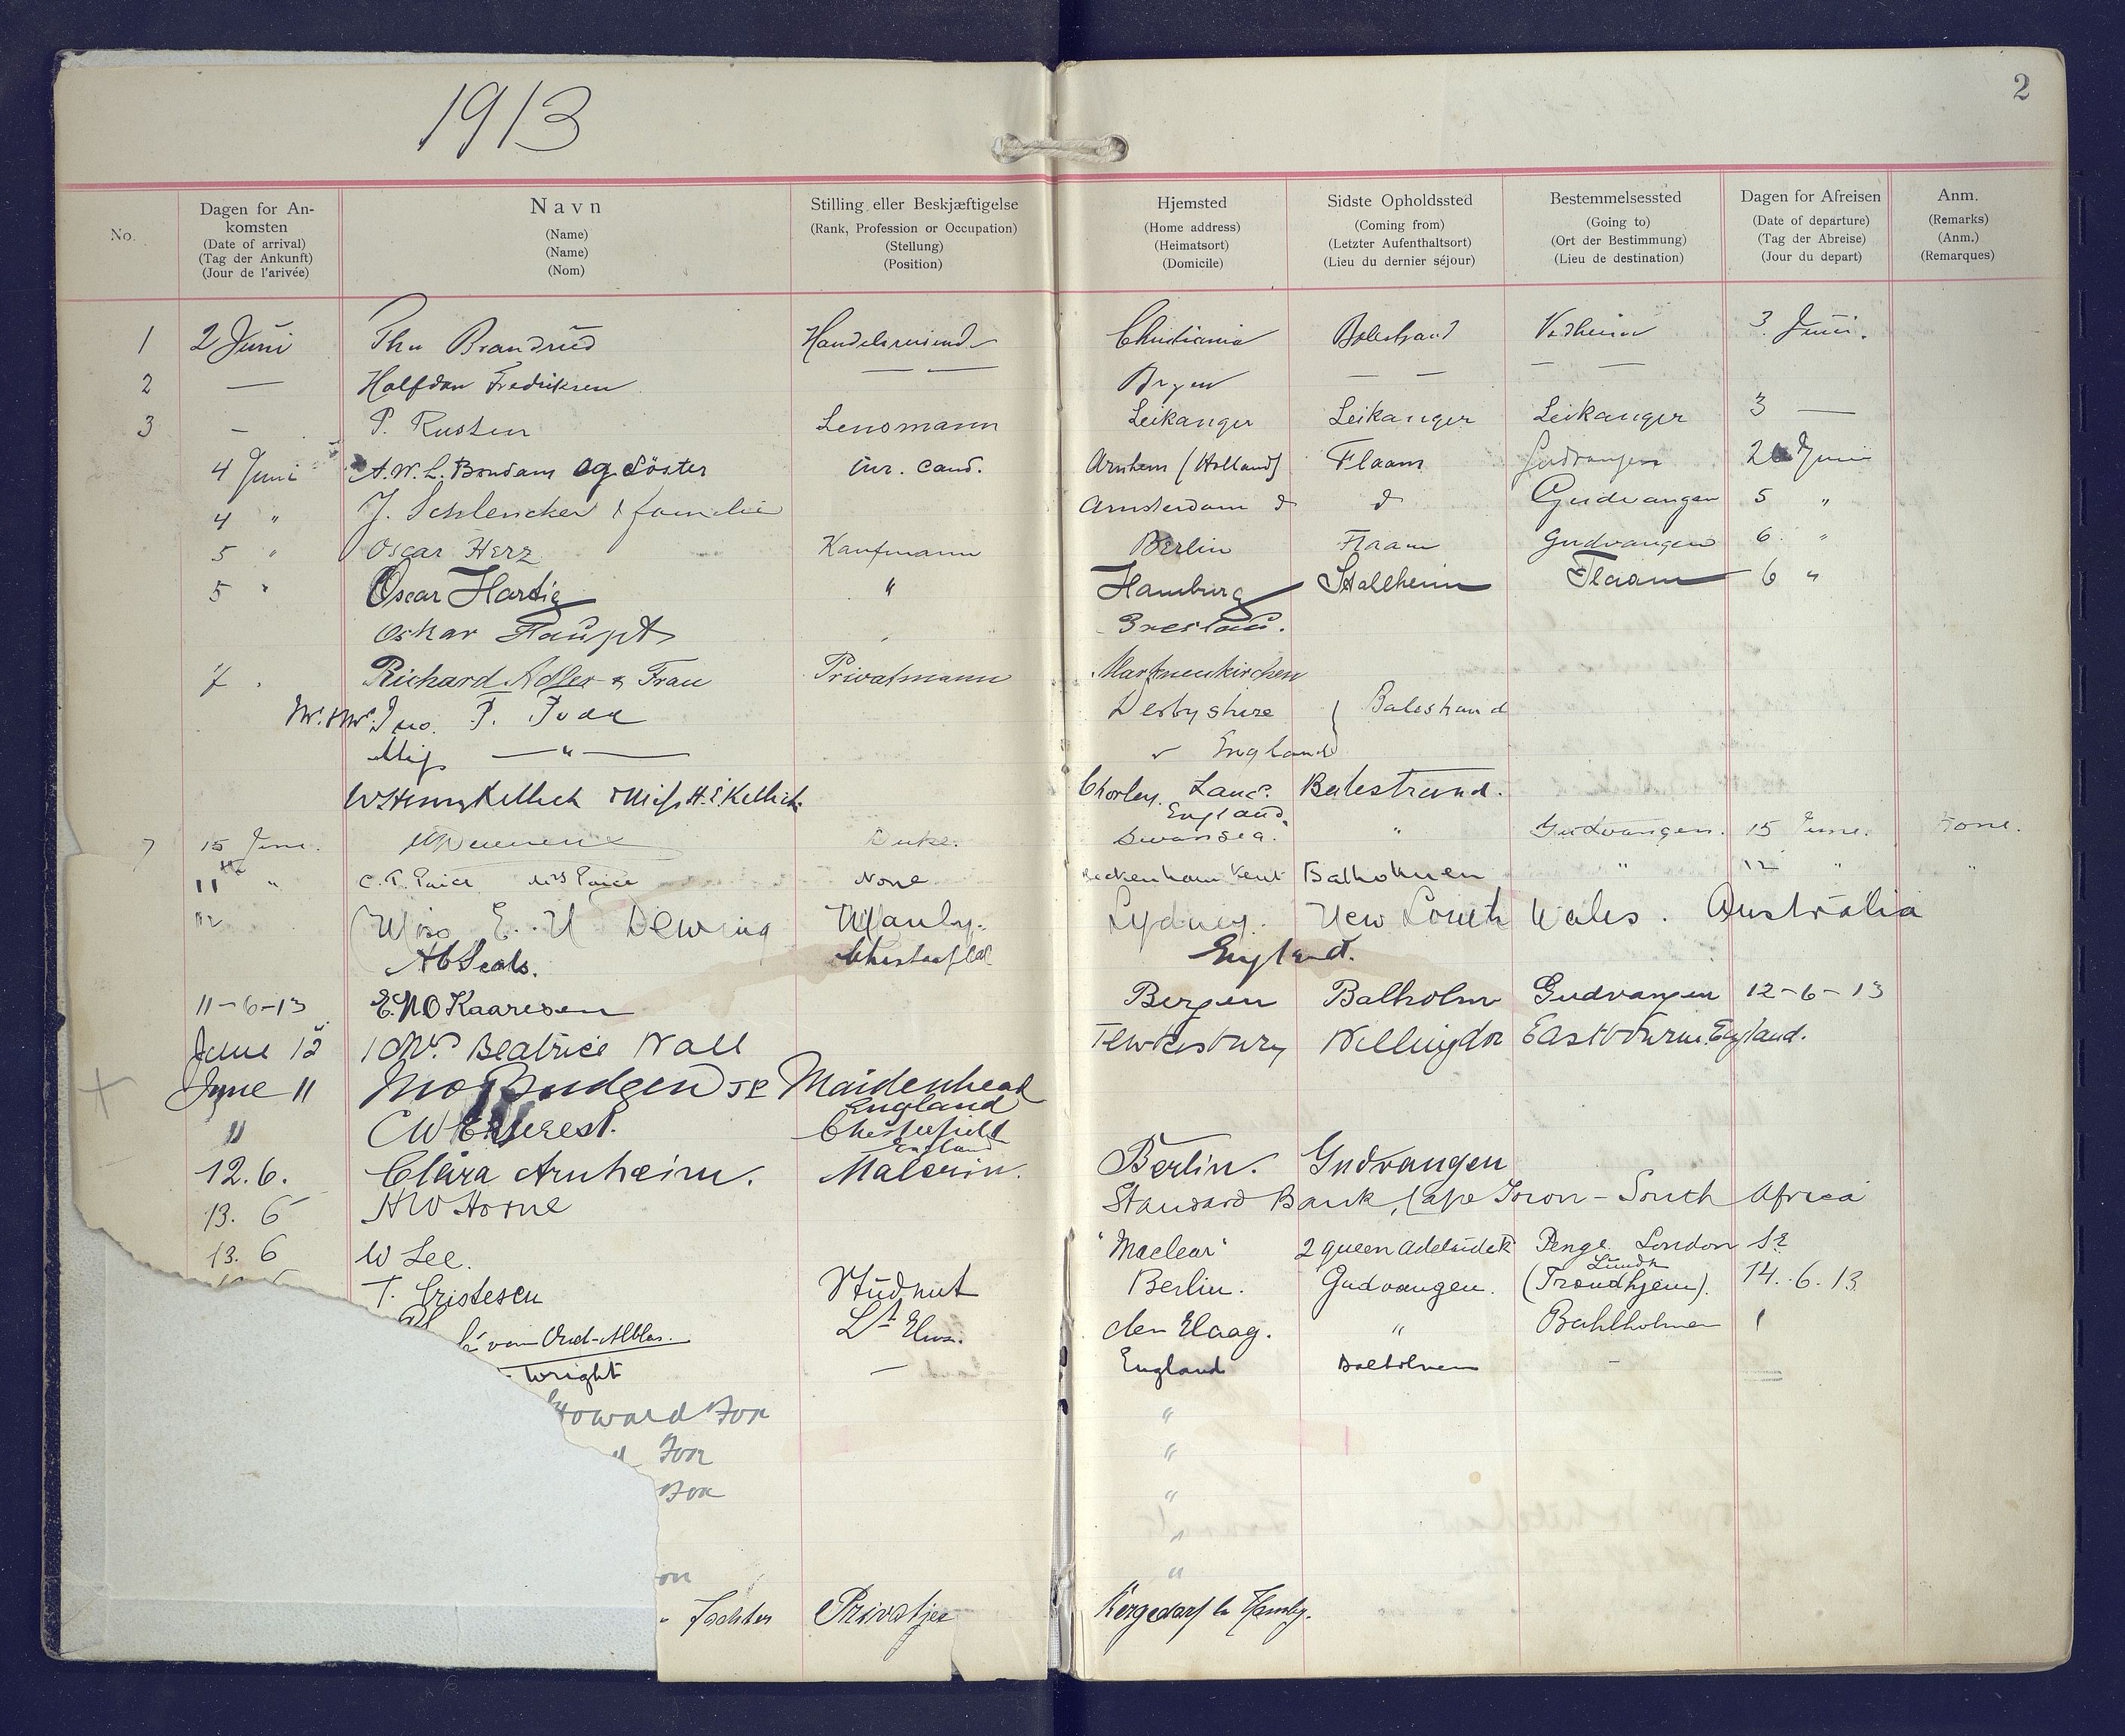 1913
2
No.
Dagen for An-
komsten
(Date of arrival)
(Tag der Ankunft)
(Jour de l'arivée)
Navn
(Name)
(Name)
(Nom)
Stilling eller Beskjæftigelse
(Rank, Profession or Occupation)
(Stellung)
(Position)
Hjemsted
(Home address)
(Heimatsort)
(Domicile)
Sidste Opholdssted
(Coming from)
(Letzter Aufenthaltsort)
(Lieu du dernier séjour)
Bestemmelsessted
(Going to)
(Ort der Bestimmung)
(Lieu de destination)
Dagen for Afreisen
(Date of departure)
(Tag der Abreise)
(Jour du depart)
Anm.
(Remarks)
(Anm.)
(Remarques)
1 2 Juni Brandrud Christiania Balestrand 3. Juni.
2 — Halfdan Fredriksen — — Bergen — — — —
3 — P. Rusten Lensmann Leikanger Leikanger Leikanger 3 —
4 Juni A. W. L. Bondam og Söster jur. cand. Arnhem (Holland) Flaam Gudvangen Juni
4 " J. Schlencker & familie Amsterdam d d Gudvangen 5 "
5 " Oscar Herz Kaufmann Berlin Flaam Gudvangen 6. "
5 " Oscar Hartig " Hamburg Stalheim Flaam 6 "
Oskar Haupt Breslau.
7 . Richard Adler & Frau Privatmann Markneukirchen
Jno. P. Derbyshire } Balestrand
Miss — " — " England
W Henry Kellett & Miss H. E. Kellett Chorley. Lanc. Balestrand.
England.
7 15 June. Duke. Swansea. " Gudvangen. 15 June. None.
11th " C. T. Paice Mrs Paice None Beckenham Kent Balholmen " 12 " "
12 Miss E. Dewing Manly. Sydney. New South Wales. Australia
England.
11-6-13 E. N O Kaaresen Bergen Balholm Gudvangen 12-6-13
June 12 Mrs. Beatrice Wall Tewkesbury Willingdon Eastbourne. England.
June 11 Jno Budgen JP Maidenhead
England
" C W Everest. Chesterfield
England
12.6. Clara Arnheim. Malerin. Berlin. Gudvangen
13. 6 H W Horne Standard Bank, Cape Town - South Africa
13. 6 W Lee. "Maclear" 2 Queen Adelaide Penge London SE
T. Cristescu Student Berlin. Gudvangen. (Trondhjem). 14. 6. 13
van Oud-Alblas. Lt den Haag. " Bahlholmen
Wright — England Balholmen -
Howard Fox "
Fox "
Fox "
"
"
Tochter Privatjee